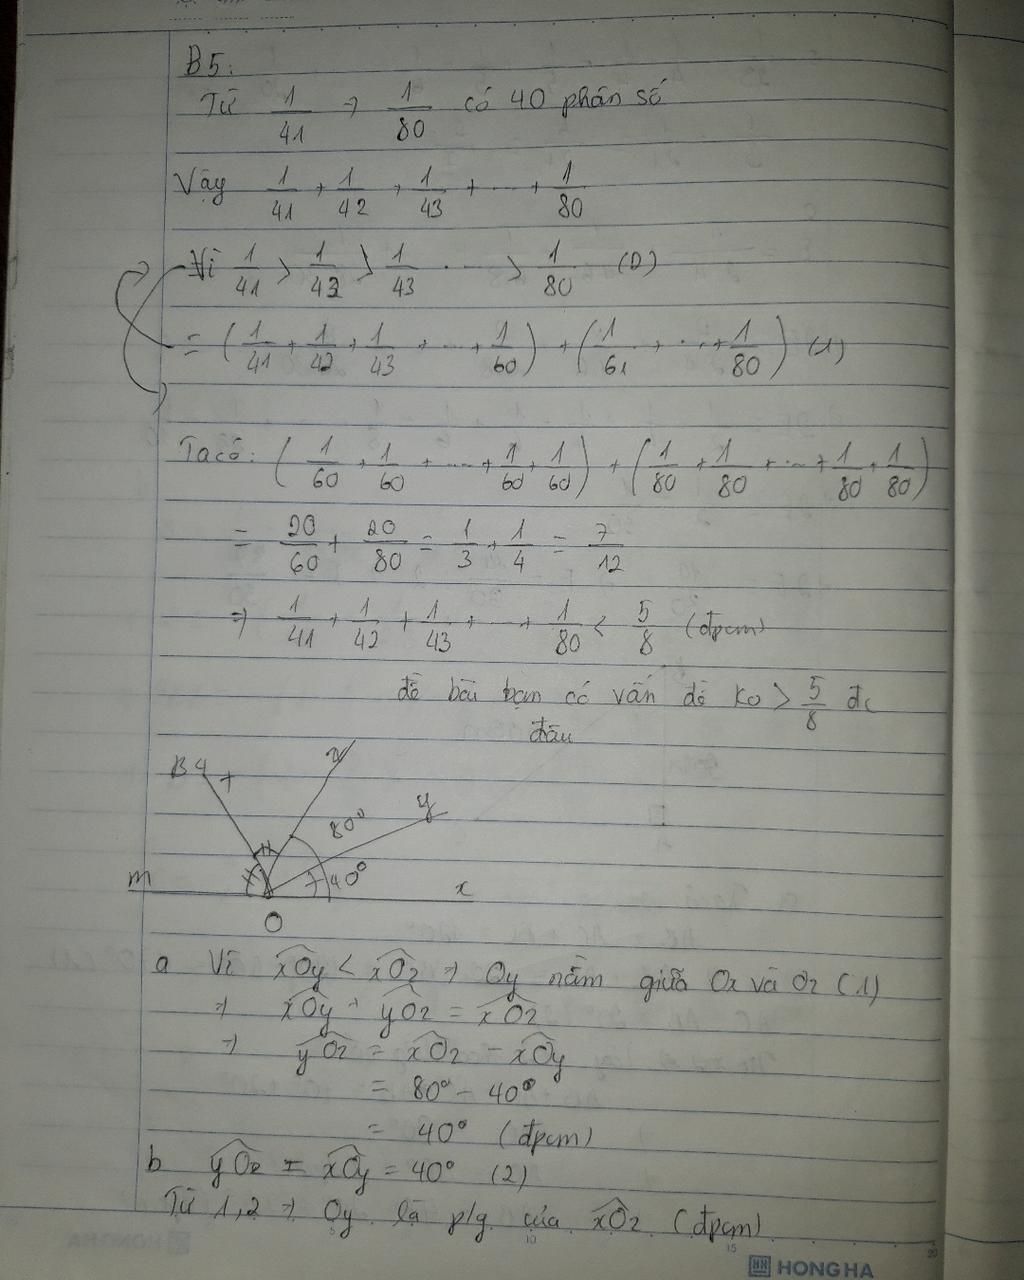 B5:
Từ 1/41 → 1/80 có 40 phân số
Vậy 1/41 + 1/42 + 1/43 + ... + 1/80
Vì 1/41 > 1/42 > 1/43 ... > 1/80 (0)
= (1/41 + 1/42 + 1/43 + ... + 1/60) + (1/61 + ... + 1/80) (1)
Ta có: (1/60 + 1/60 + ... + 1/60 + 1/60) + (1/80 + 1/80 + ... + 1/80 + 1/80)
= 20/60 + 20/80 = 1/3 + 1/4 = 7/12
⇒ 1/41 + 1/42 + 1/43 + ... + 1/80 < 5/8 (đpcm)
đề bài bạn có vấn đề ko > 5/8 đc
đâu
B4 t z
80° y
m 40° x
O
a Vì xOy < xOz ⇒ Oy nằm giữa Ox và Oz (1)
⇒ xOy + yOz = xOz
⇒ yOz = xOz - xOy
= 80° - 40°
= 40° (đpcm)
b yOz = xOy = 40° (2)
Từ 1,2 ⇒ Oy là p/g của xOz (đpcm)
5 10 15 20
HONG HA